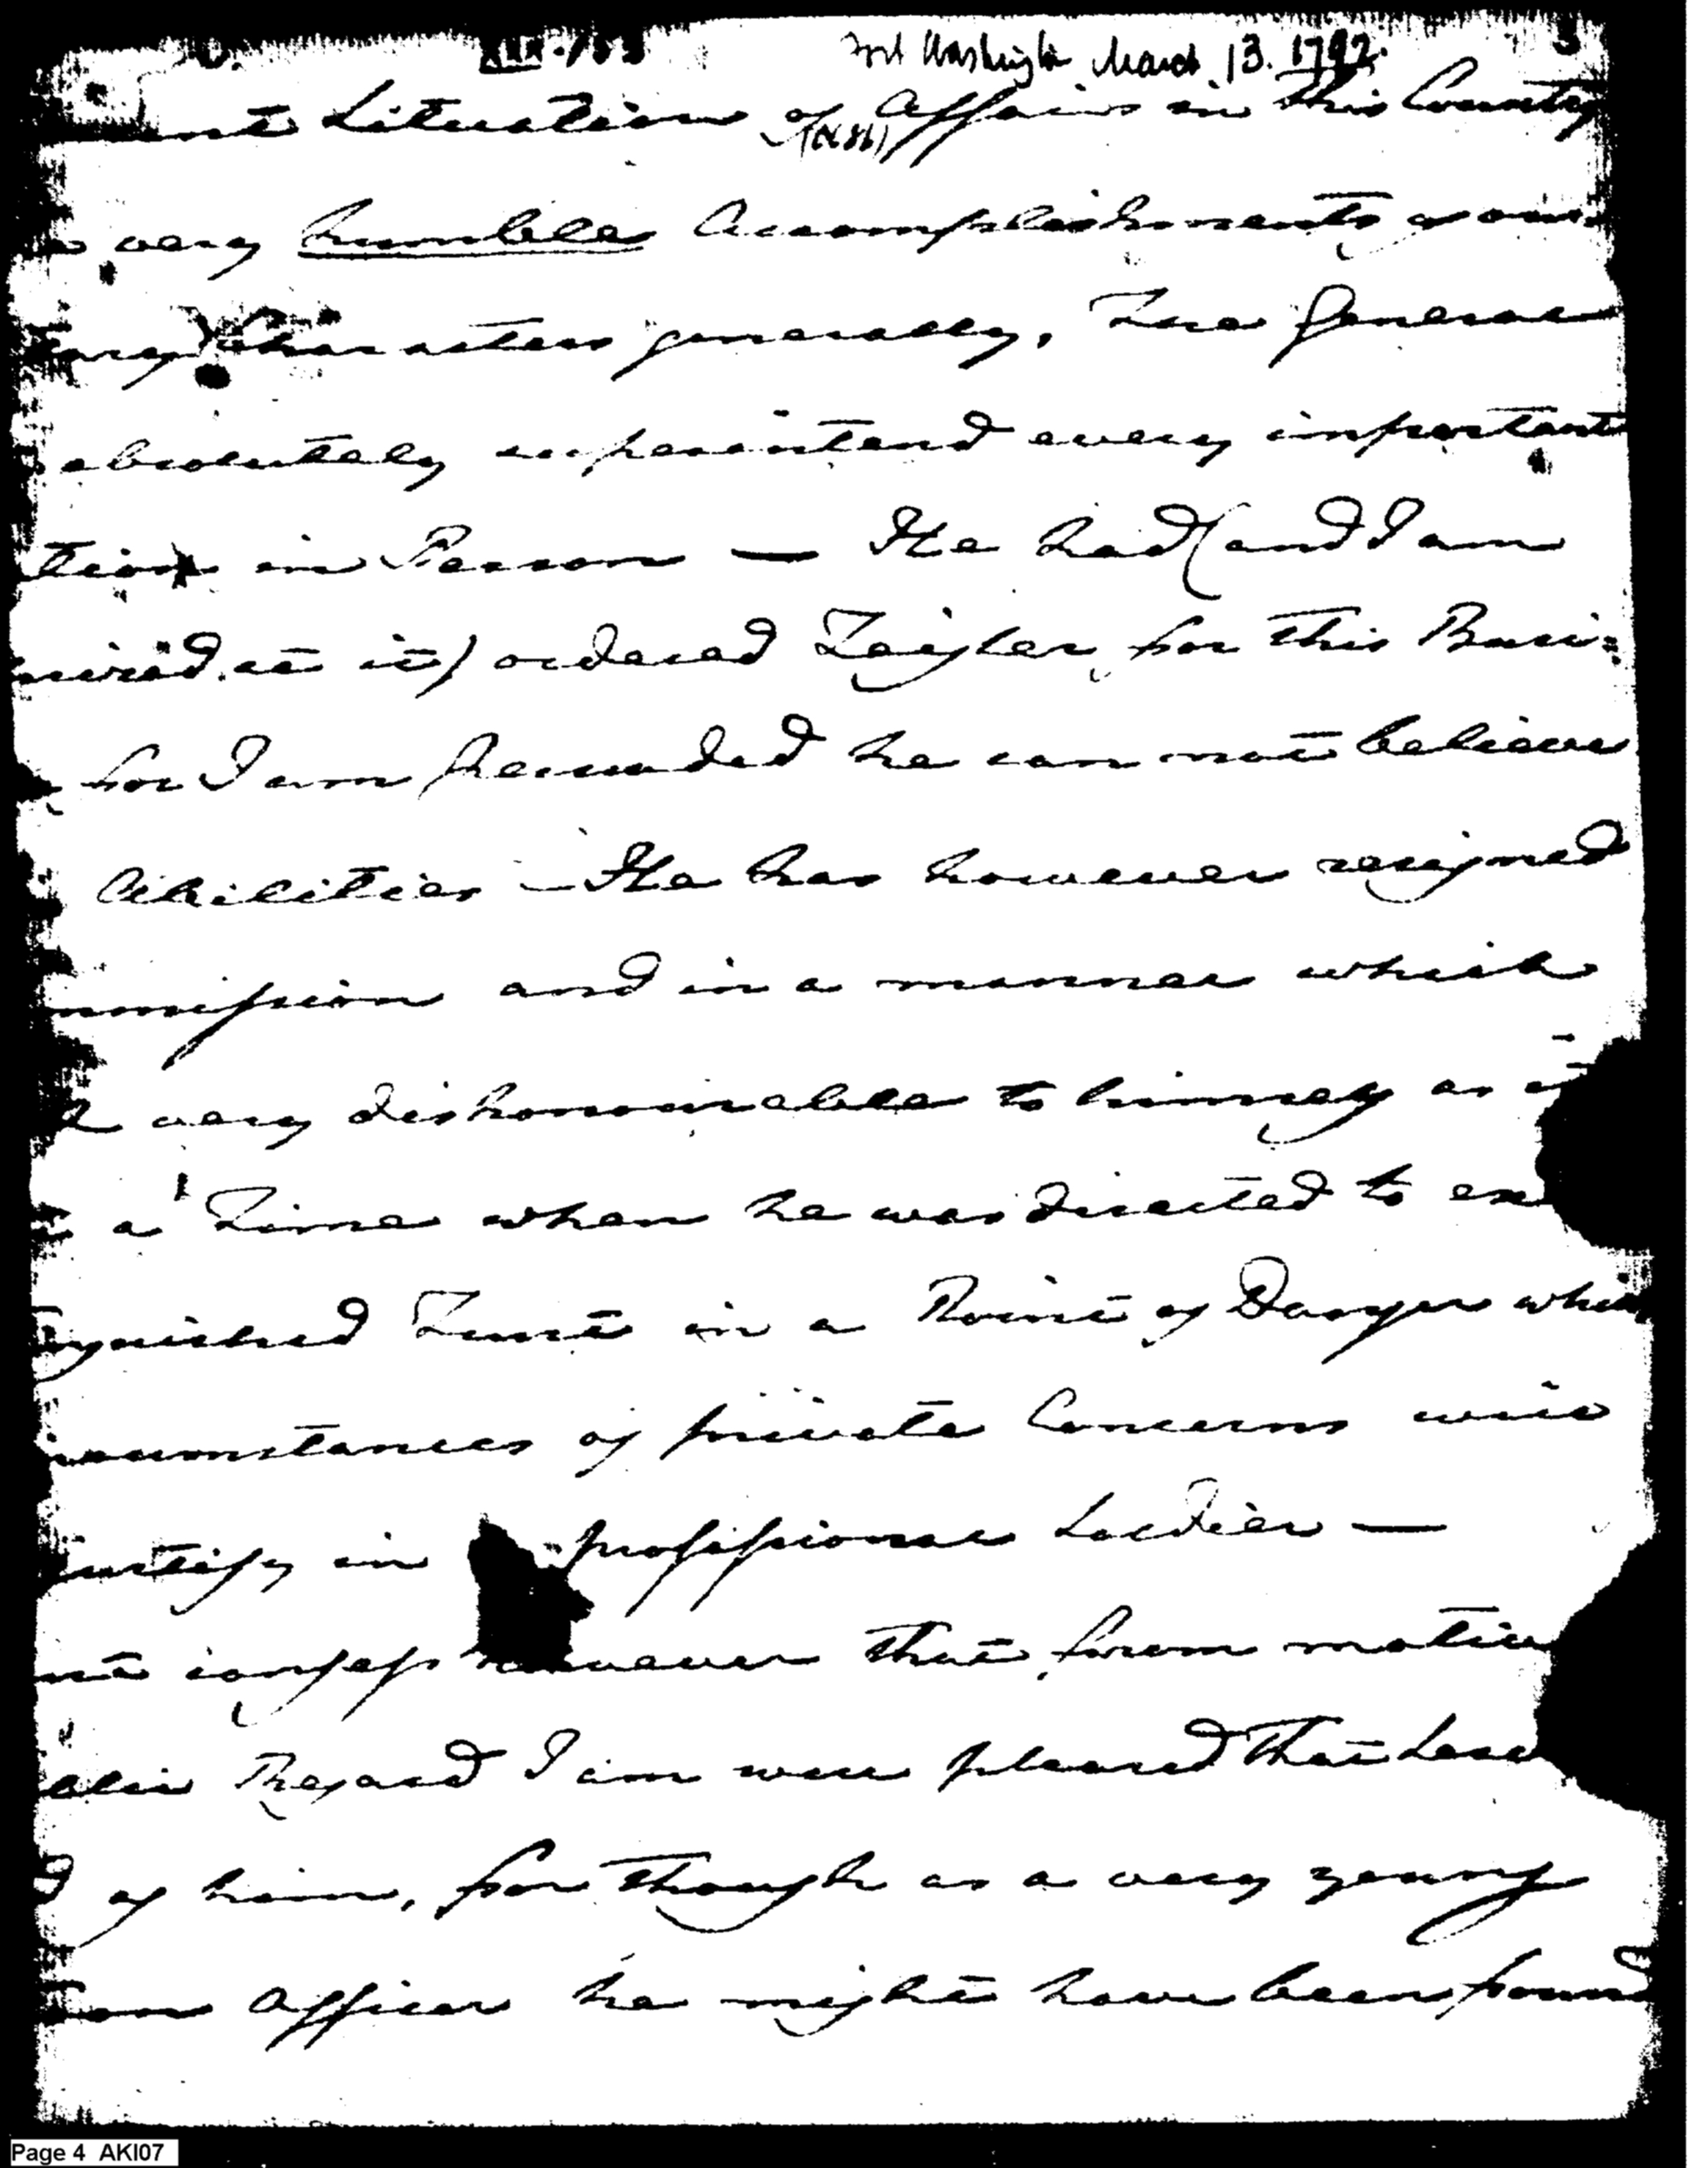 Fort Washington March 13. 1792.
Situation of Affairs in this Country
very humble Accomplishments
Characters generally, The General
absolutely superintend every important
tion in Person — He had (and I am
it) ordered Zeigler for this Busi=
for I am persuaded he can not believe
Abilities — He has however resigned
mmission and in a manner which
very dishonourable to himself as
a Time when he was directed to
guished Trust in a Point of Danger which
cumstances of private Concerns will
justify in professional Soldier —
confess however that from motive
Regard I am well pleased that
of him, for though as a very young
Officer he might have been found
Page 4 AKI07